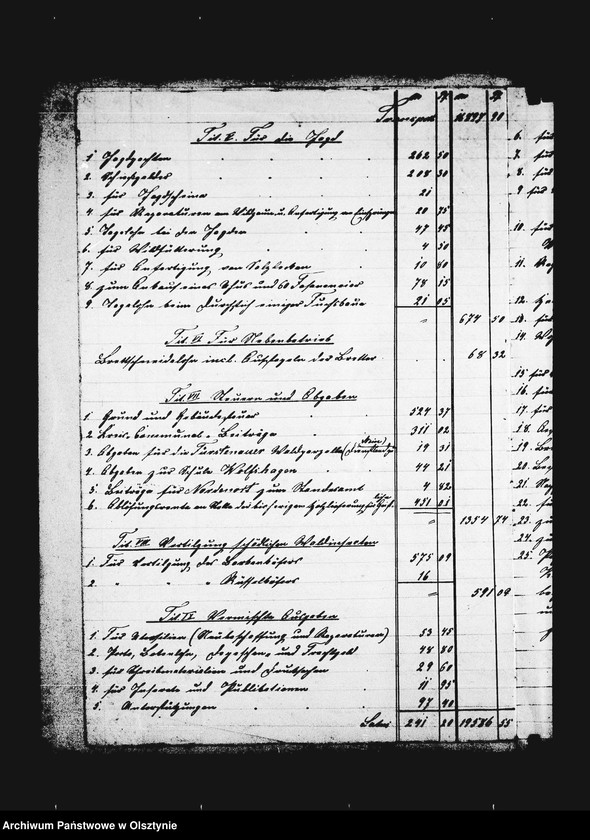 M. Pf. M. Pf.
Transport 16897 90
Tit. V. Für die Jagd
1. Jagdpachten 262 50
2. Schußgelder 208 30
3. für Jagdscheine 21
4. für Reparaturen am Wildzaun u. Anfertigung von 20 75
5. Tagelohn bei den Jagden 47 45
6. für Wildfütterung 4 50
7. für Anfertigung von Salzlecken 10 80
8. zum Ankauf eines Uhus und 60 Fasaneneier 78 15
9. Tagelohn beim Durchstich einiger Fuchsbaue 21 05
" 674 50
Tit. VI Für Nebenbetrieb
Brettschneidelohn incl. der Bretter 68 32
Tit. VII Steuern und Abgaben
1. Grund und Gebäudesteuer 524 37
2 Kreis-Communal-Beiträge 311 02
3. Abgaben für die Fürstenauer Waldparzelle 19 31
4. Abgaben zur Schule Wolfshagen 44 21
5. Beiträge für Nordenort zum Standesamt 4 82
6. Ablösungsrente an Stelle der bisherigen Holzlieferung 451 01
" 1354 74
Tit. VIII Vertilgung schädlicher Waldinsekten
1. Für Vertilgung des Borkenkäfers 575 09
2. " " " Rüsselkäfers 16
" 591 09
Tit. IX Vermischte Ausgaben
1. Für Utensilien (Neubeschaffung und Reparaturen) 53 45
2. Porto, Botenlohn, Depeschen- und Frachtgeld 48 80
3. für Schreibmaterialien und Drucksachen 29 60
4. für Inserate und Publikationen 11 95
5. Unterstützungen 97 40
Latus 241 20 19586 55
6. für
7. für
8. für
9 für
10. für
11. Rep
12.
13. für
14.
15 für
16. für
17. für
18.
19.
20.
21.
22. für
23. zu
24. zu
25.
Archiwum Państwowe w Olsztynie